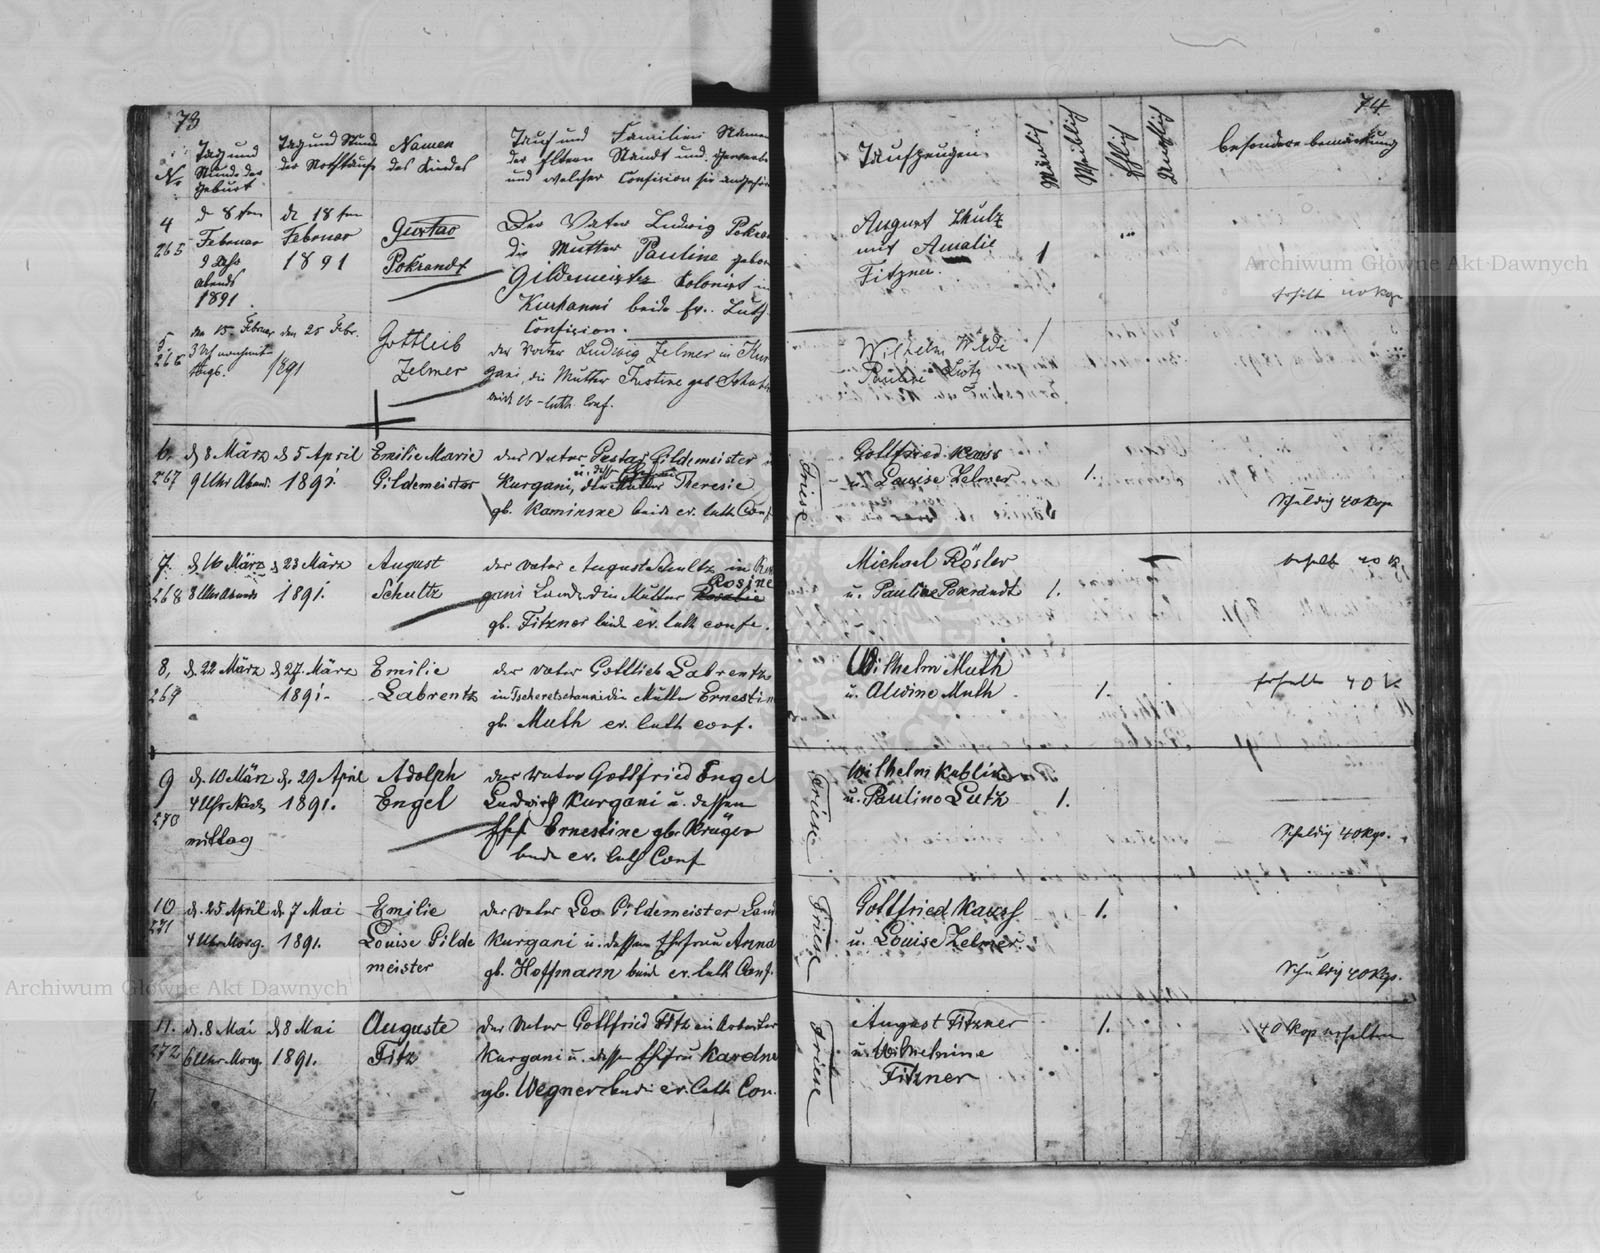 73
No
Tag und
Stunde der
Geburt
Tag und Stunde
der Nothtaufe
Namen
des Kindes
Tauf und Familien Namen
der Eltern Standt und Gewerbe
und welcher Confision sie angehören
4
265
d 8 ten
Februar
9 Uhr
abends
1891
de 18 ten
Februar
1891
Gustav
Pokrandt
Der Vater Ludwig Pokran
die Mutter Pauline gebor
Gildemeister Kolonist in
Kurkanni beide Ev. Luth.
Confision.
5.
266
den 15. Februar
3 Uhr nachmit
tags.
den 25 Febr.
1891
Gottlieb
Zelmer
der Vater Ludwig Zelmer in Kur
gani, die Mutter Justine geb Schutz
beide ev-luth. Conf.
6.
267
d 8 März
9 Uhr Abend.
d 5 April
1891.
Emilie Marie
Gildemeister
der Vater Gildemeister
u. dessen
Kurgani, Theresie
gb. Kaminske beide ev. luth Conf.
7.
268
d 16 März
8 Uhr Abends
d 23 März
1891.
August
Schultz
der Vater August Schultz in Kur
Rosine
gani Landr. die Mutter Rosalie
gb. Fitzner beide ev. luth confe.
8.
269
d. 22 März
d 27. März
1891.
Emilie
Labrentz
der Vater Gottlieb Labrentz
in Tscheretschanni die Mutter Ernestin
gb. Muth ev. luth conf.
9
270
d. 10 März
4 Uhr Nach
mittag
d. 29 April
1891.
Adolph
Engel
der Vater Gottfried Engel
Landwirth Kurgani u. dessen
Ehf. Ernestine gb. Krüger
beide ev. luth Conf
10
271
d. 25 April
4 Uhr Morg.
d. 7 Mai
1891.
Emilie
Louise Gilde
meister
der Vater Leo Gildemeister Land
Kurgani u. dessen Ehefrau Anna
gb. Hoffmann beide ev. luth Conf.
11.
272
d. 8 Mai
6 Uhr Morg.
d 8 Mai
1891.
Auguste
Fitz
der Vater Gottfried Fitz ein Arbeiter
Kurgani u. dessen Ehefrau
gb. Wegner beide ev. luth Con.
74
Taufzeugen
Mänlich
Weiblich
Ehlich
Unehlich
besondere bemärkung
August Schulz
mit Amalie
Fitzner.
1
Erhalt 40 Kop
Wilhelm Wilde
Pauline Lutz
1
Friese
Gottfried Kauss
u. Louise Zelmer
1.
Schuldig 40 Kop
Michael Rösler
u. Pauline Pokrandt
1.
erhalt 40 K
Wilhelm Muth
u. Alwine Muth
1.
Erhalt 40 K.
Friese
Wilhelm Kublin
u. Pauline Lutz
1.
Schuldig 40 Kop.
Friese
Gottfried Kauss
u. Louise Zelmer.
1.
Schuldig 40 Kop.
Friese
August Fitzner
u. Wilhelmine
Fitzner
1.
40 Kop erhalten
Archiwum Główne Akt Dawnych
Archiwum Główne Akt Dawnych